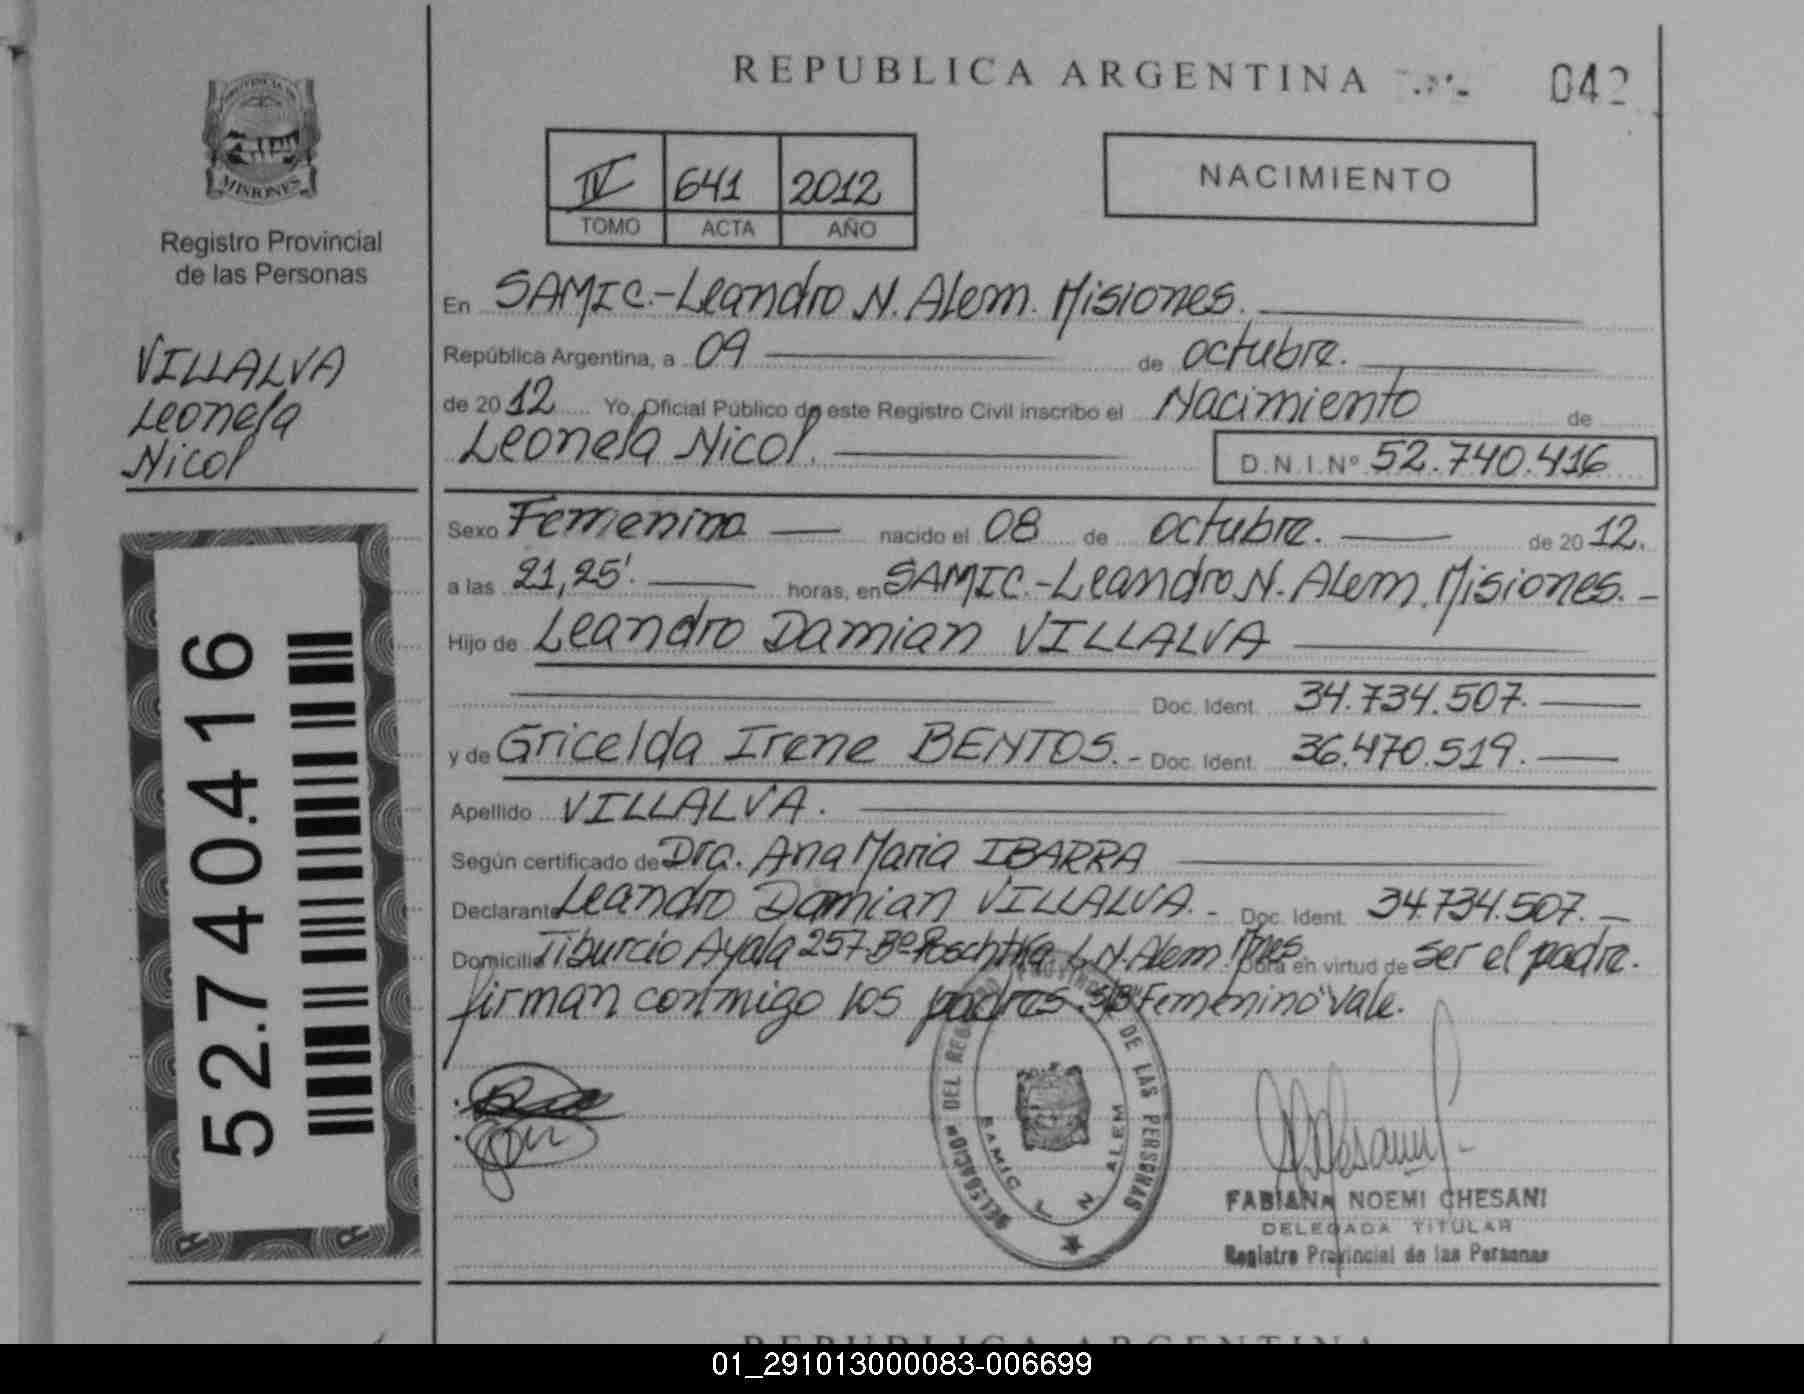 REPUBLICA ARGENTINA
042
PROVINCIA DE
MISIONES
Registro Provincial
de las Personas
IV 641 2012
TOMO ACTA AÑO
NACIMIENTO
VILLALVA
Leonela
Nicol
52.740.416
En SAMIC.-Leandro N. Alem. Misiones.
República Argentina, a 09 de octubre.
de 2012 Yo, Oficial Público de este Registro Civil inscribo el Nacimiento de
Leonela Nicol. D.N.I.Nº 52.740.416
Sexo Femenino nacido el 08 de octubre. de 2012.
a las 21,25'. horas, en SAMIC.-Leandro N. Alem. Misiones.-
Hijo de Leandro Damian VILLALVA
Doc. Ident. 34.734.507.
y de Gricelda Irene BENTOS.- Doc. Ident. 36.470.519.
Apellido VILLALVA.
Según certificado de Dra. Ana Maria IBARRA
Declarante Leandro Damian VILLALVA.- Doc. Ident. 34.734.507.-
Domicilio Tiburcio Ayala 257-Bº L.N.Alem. Mnes. Obra en virtud de ser el padre.
firman conmigo los padres. "Femenino" Vale.
DELEGACION DEL REGISTRO PROVINCIAL DE LAS PERSONAS
SAMIC L N ALEM
FABIANA NOEMI CHESANI
DELEGADA TITULAR
Registro Provincial de las Personas
REPUBLICA ARGENTINA
01_291013000083-006699